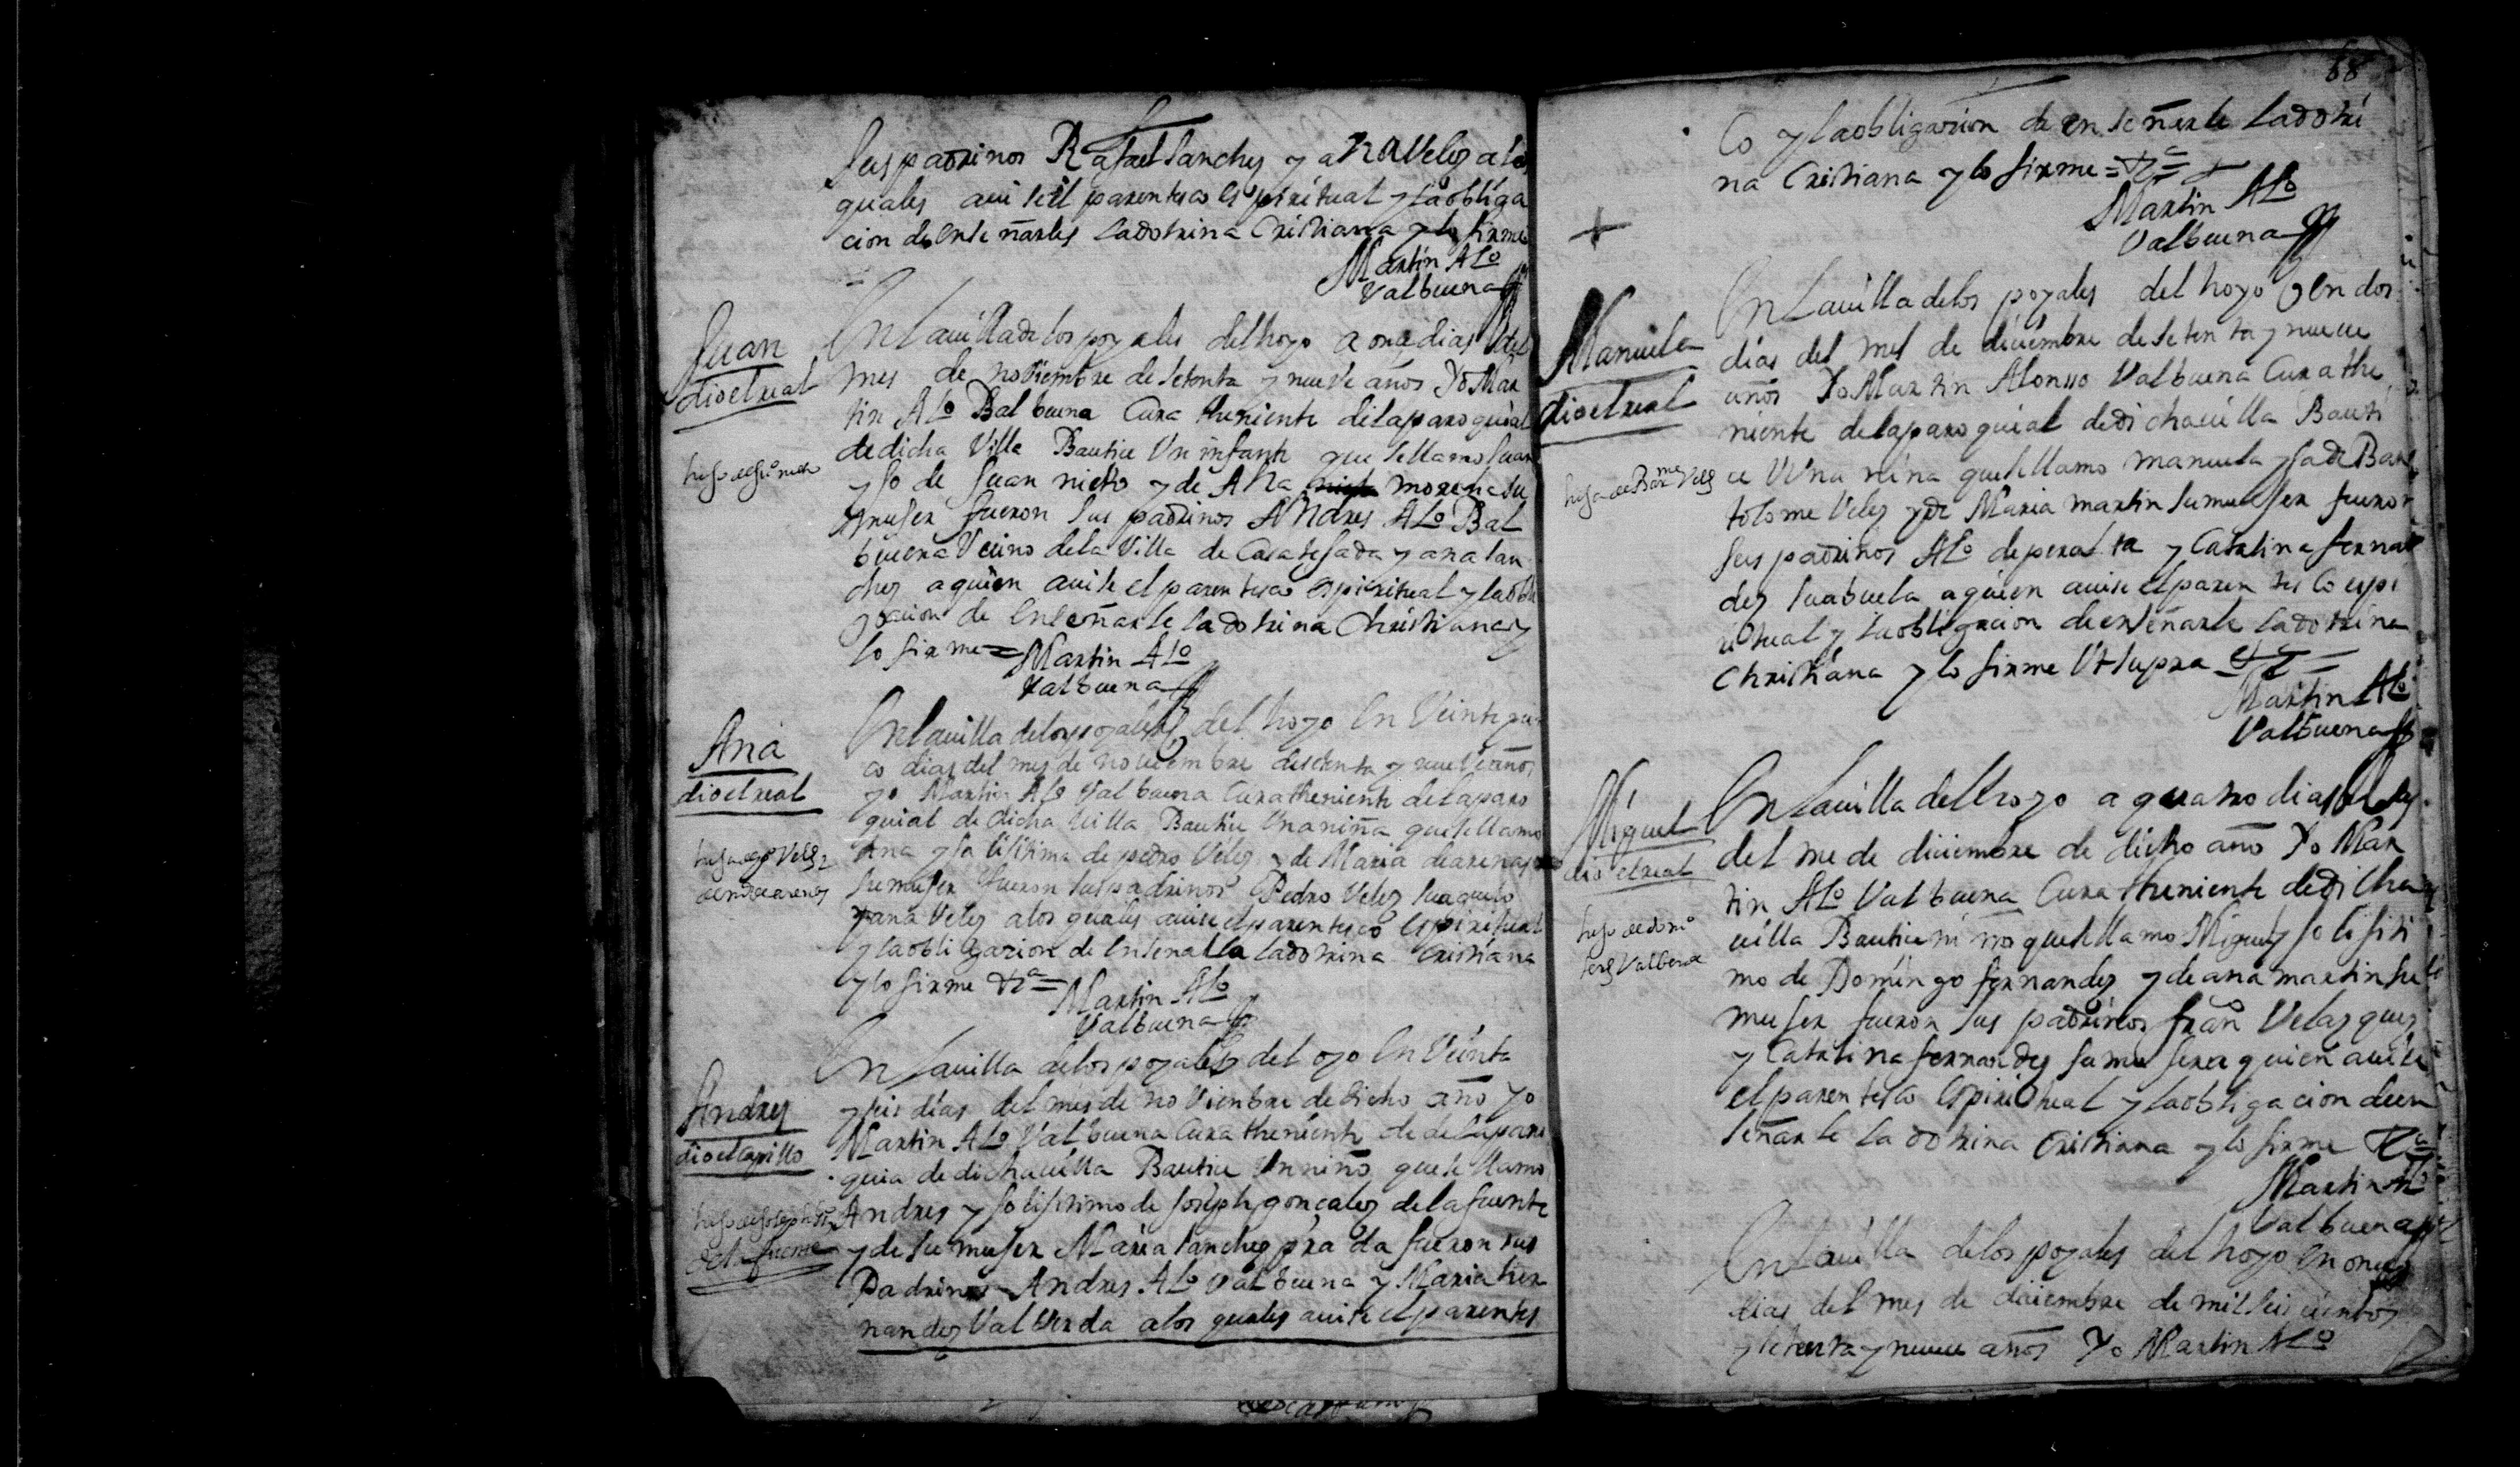 sus padrinos Rafael sanches y ana Velez a los
quales auise el parentesco espiritual y la obliga
cion de enseñarles la dotrina Cristiana y lo firme
Martin Alo
Valbuena
Juan
dio el real
hijo de Ju nieto
En la uilla de los poyales del hoyo a onze dias del
mes de noviembre de setenta y nueve años Yo Mar
tin Alo Balbuena Cura theniente de la paroquial
de dicha Villa Bautice Un infante que se llamo Juan
yjo de Juan nieto y de Ana morena su
muser fueron sus padrinos Andres Alo Bal
buena Vecino de la Villa de Casatejada y ana san
chez a quien auise el parentesco espiritual y la obli
gacion de enseñarle la dotrina Christiana y
lo firme = Martin Alo
Valbuena
Ana
dio el real
hija de po Velez
de arenas
En la uilla de los poyales del hoyo en Veinte
co dias del mes de noviembre de setenta y nueve años
yo Martin Alo Valbuena Cura theniente de la paro
quial de dicha Villa Bautice Una niña que se llamo
Ana yja lijitima de pedro Velez y de Maria de arenas
su mujer fueron sus padrinos Pedro Velez su aguelo
y ana Velez a los quales auise el parentesco espiritual
y la obligazion de ensenalla la dotrina Cristiana
y lo firme &a = Martin Alo
Valbuena
Andres
dio el capillo
hijo de Joseph
de la fuente
En la uilla de los poyales del oyo en Veinte
y seis dias del mes de noviembre de dicho año yo
Martin Alo Valbuena Cura theniente de de la paro
quia de dicha uilla Bautice Un niño que se llamo
Andres yjo lijitimo de Joseph gonçalez de la fuente
y de su mujer Maria sanchez prada fueron sus
Padrinos Andres Alo Valbuena y Maria her
nandez Valverda a los quales auise el parentes
68
co y la obligacion de enseñarle la dotri
na Cristiana y lo firme = &a =
Martin Alo
Valbuena
+
Manuela
dio el real
hija de Barme Velez
En la uilla de los poyales del hoyo en dos
dias del mes de diciembre de setenta y nueue
años Yo Martin Alonso Valbuena Cura the
niente de la paroquial de dicha uilla Bauti
ce Una nina que se llamo manuela yja de Bar
tolome Velez y de Maria martin su mujer fueron
sus padrinos Alo de peralta y Catalina fernan
dez su abuela a quien auise el parentesco espi
ritual y la obligacion de enseñarle la dotrina
Christiana y lo firme Ut supra
Martin Alo
Valbuena
Miguel
dio el real
hijo de domo
ferz Valbuena
En la uilla del hoyo a quatro dias
del me de diciembre de dicho año Yo Mar
tin Alo Valbuena Cura theniente de dicha
uilla Bautice ni no que se llamo Miguel yjo lijiti
mo de Domingo fernandez y de ana martin su
mujer fueron sus padrinos frano Velazquez
y Catalina fernandez su mujer a quien auise
el parentesco espiritual y la obligacion de en
señarle la dotrina Cristiana y lo firme &a
Martin Alo
Valbuena
En la uilla de los poyales del hoyo en onze
dias del mes de diciembre de mil seiscientos
y setenta y nueue años Yo Martin Alo